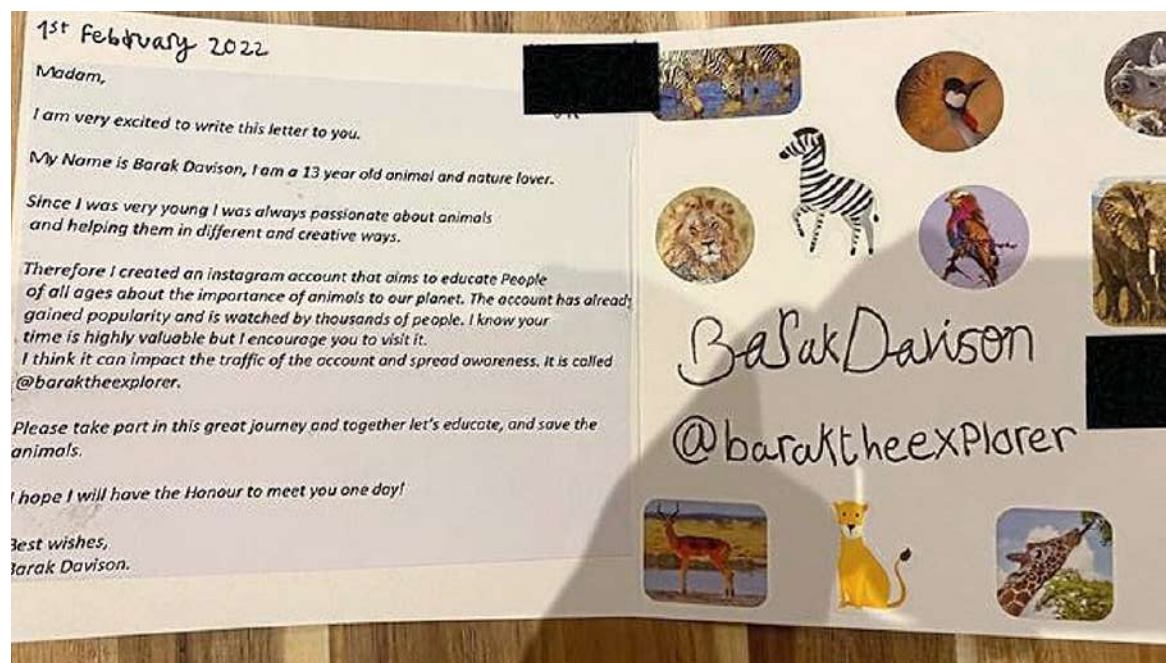 1st February 2022
Madam,
I am very excited to write this letter to you.
My Name is Barak Davison, I am a 13 year old animal and nature lover.
Since I was very young I was always passionate about animals
and helping them in different and creative ways.
Therefore I created an instagram account that aims to educate People
of all ages about the importance of animals to our planet. The account has already
gained popularity and is watched by thousands of people. I know your
time is highly valuable but I encourage you to visit it.
I think it can impact the traffic of the account and spread awareness. It is called
@baraktheexplorer.
Please take part in this great journey and together let's educate, and save the
animals.
I hope I will have the Honour to meet you one day!
Best wishes,
Barak Davison.
Barak Davison
@baraktheexPlorer